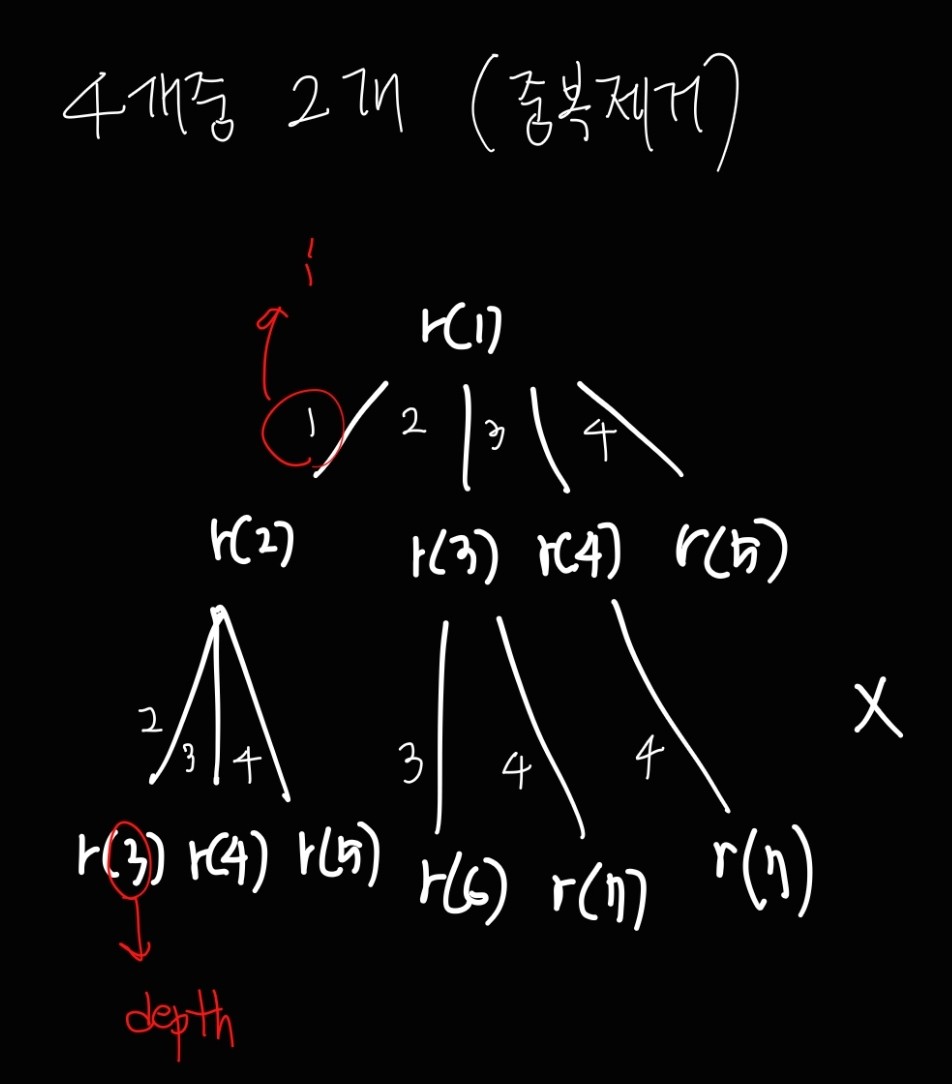 4개중 2개 (중복제거)
i
r(1)
1 2 3 4
r(2) r(3) r(4) r(5)
2 3 4 3 4 4 X
r(3) r(4) r(5) r(6) r(7) r(7)
depth